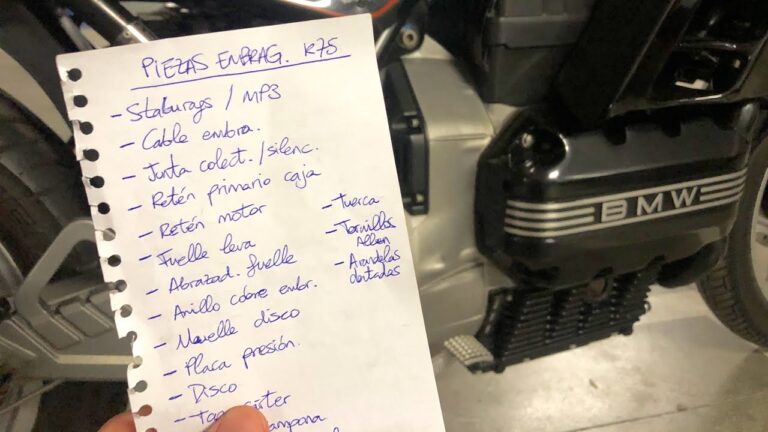 PIEZAS EMBRAG. K75
- Staburags / MP3
- Cable embra.
- Junta colect./silenc.
- Retén primario caja
- Retén motor
- Fuelle leva
- Abrazad. fuelle
- Anillo cobre embr.
- Muelle disco
- Placa presión.
- Disco
- Tuerca
- Tornillos
Allen
- Arandelas
dentadas
BMW